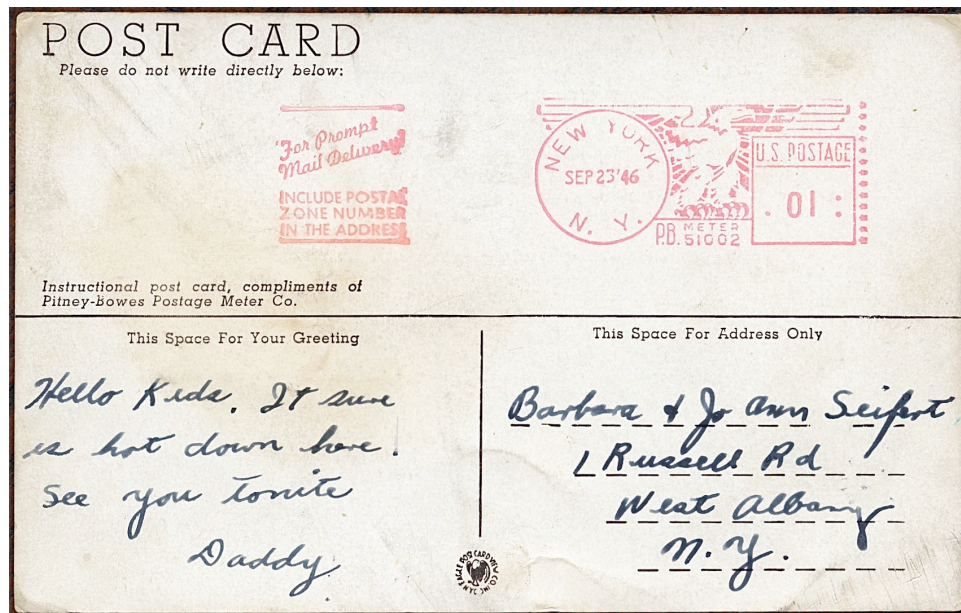 POST CARD
Please do not write directly below:
For Prompt
Mail Delivery!
INCLUDE POSTAL
ZONE NUMBER
IN THE ADDRESS
NEW YORK
SEP 23'46
N. Y.
U.S. POSTAGE
.01:
P.B. METER
51002
Instructional post card, compliments of
Pitney-Bowes Postage Meter Co.
This Space For Your Greeting
Hello Kids. It sure
is hot down here.
See you tonite
Daddy
This Space For Address Only
Barbara & Jo Ann Seifert
1 Russell Rd
West Albany
N.Y.
EAGLE POST CARD VIEW CO. INC.